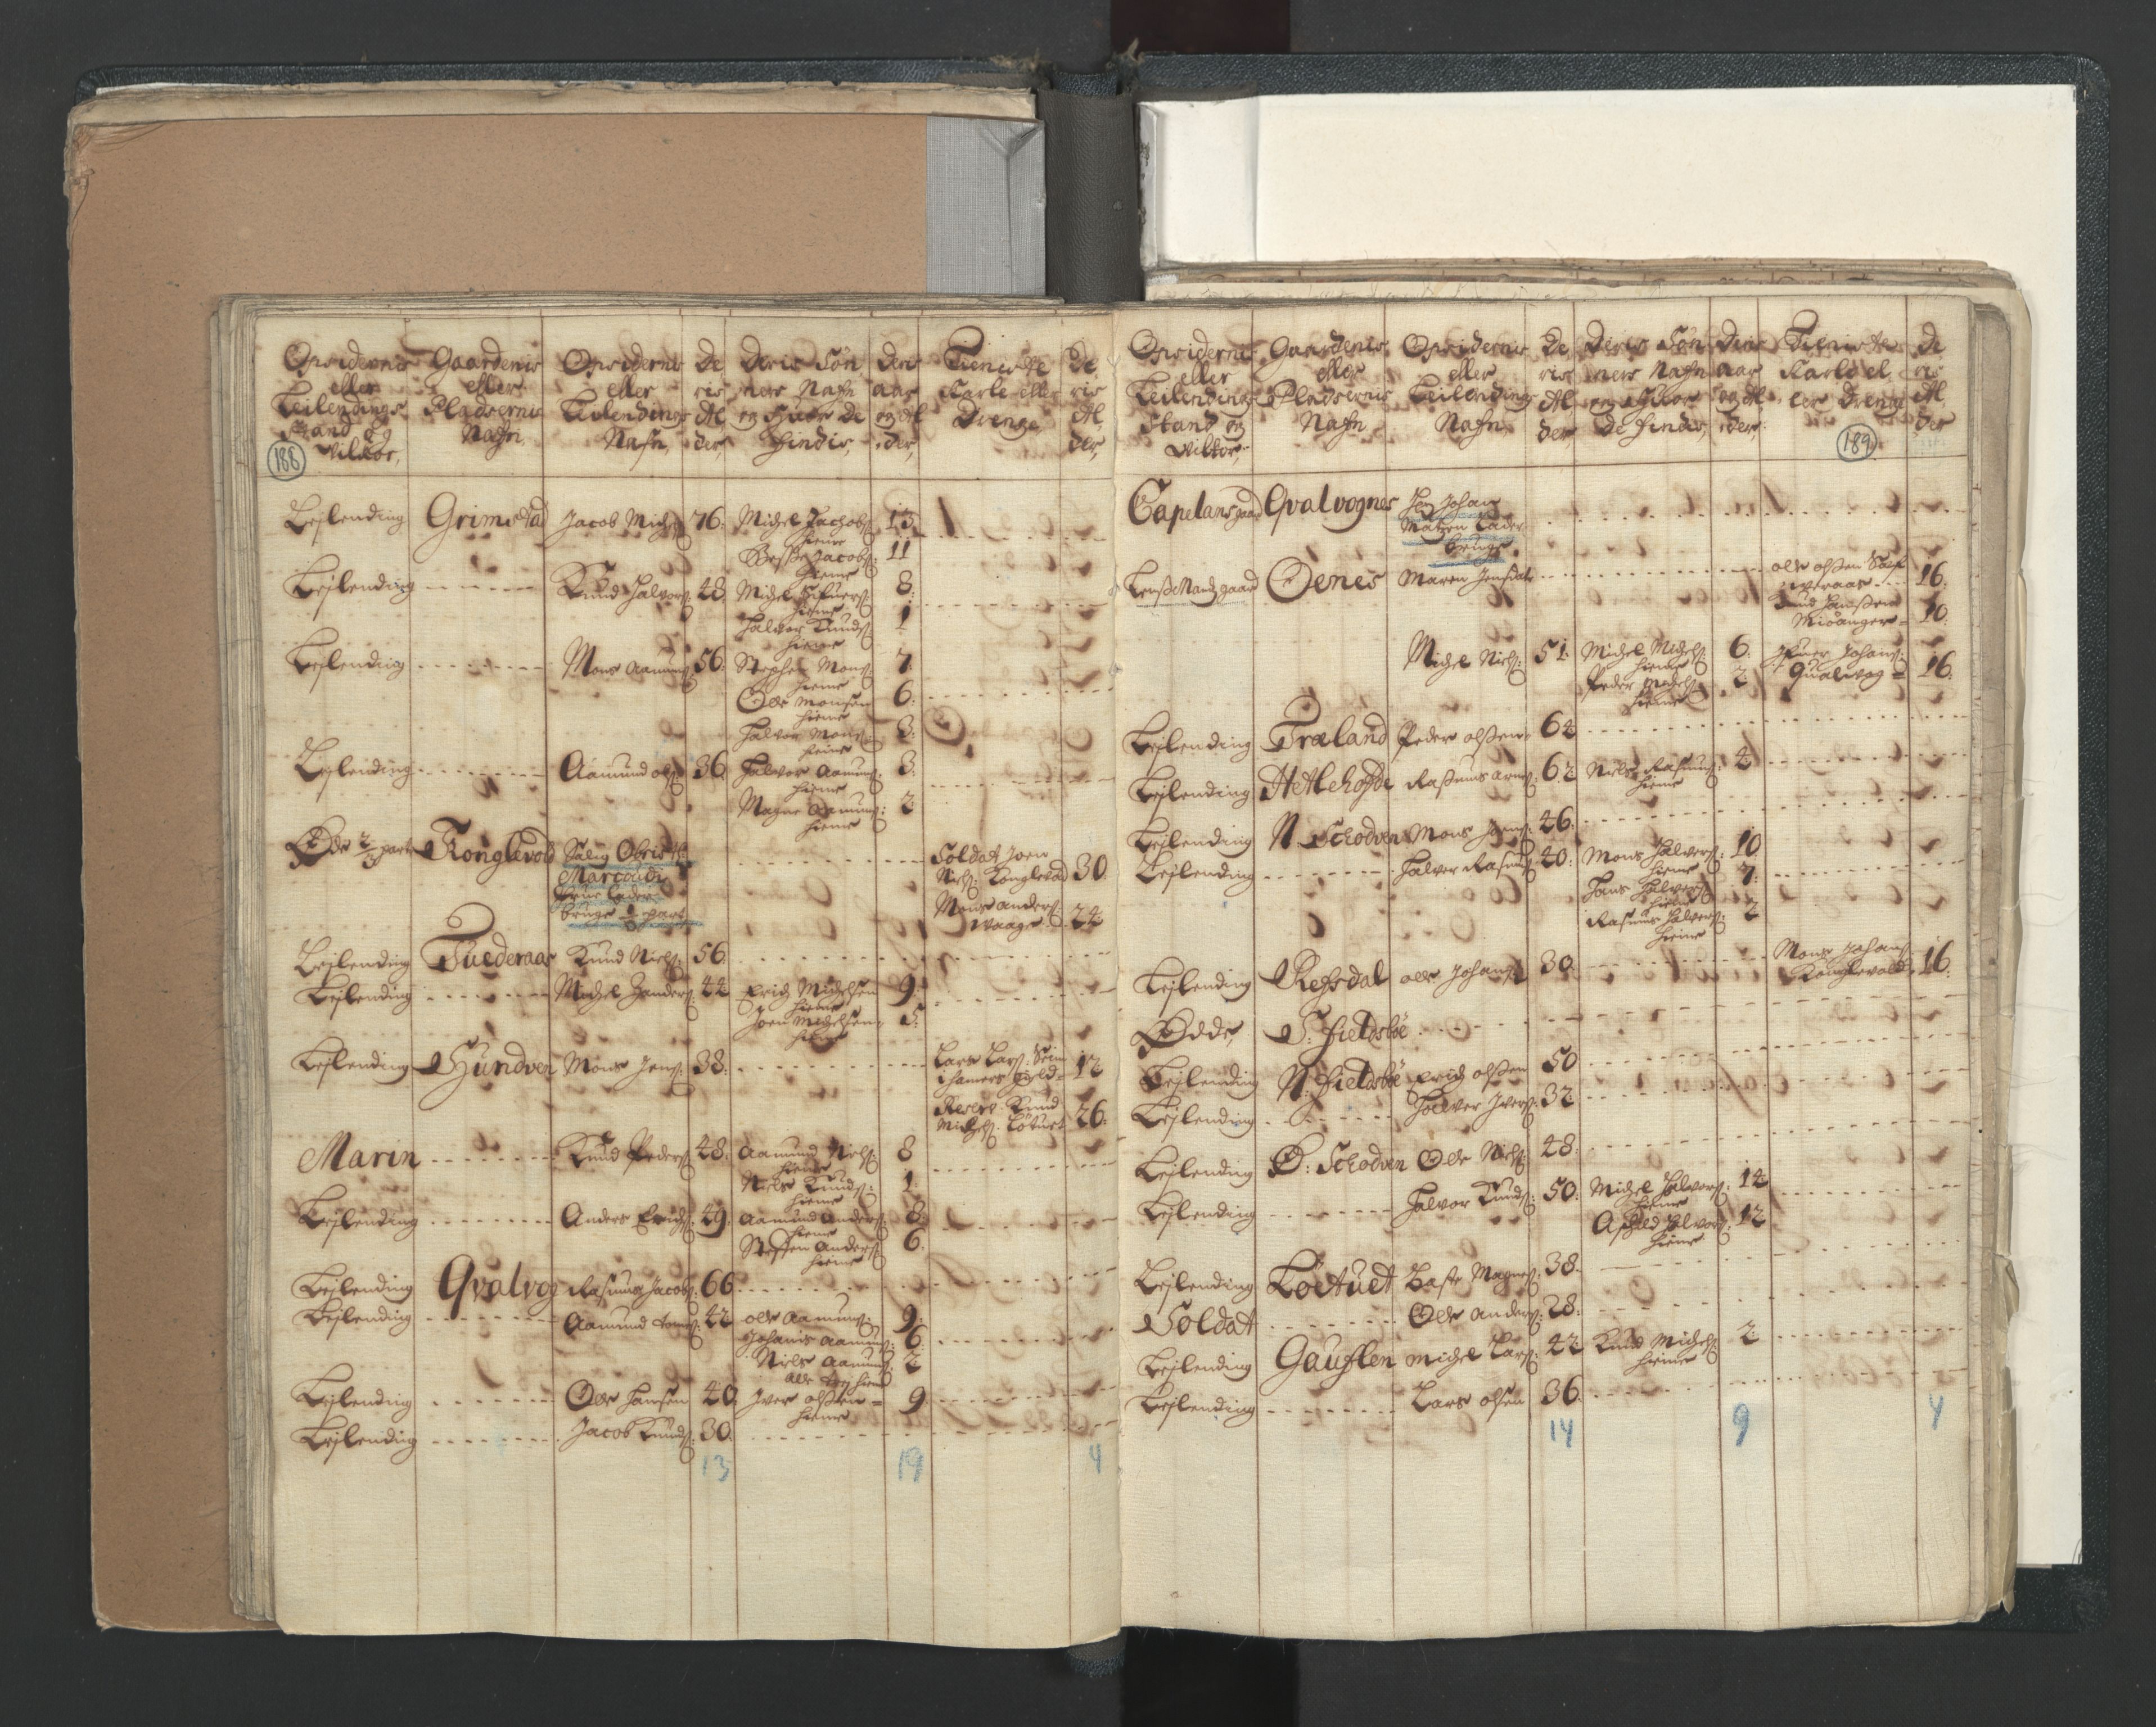 188
Opsidernis eller Leilendings Stand og Vilkor,
Gaardenis eller Pladsernis Nafn
Opsidernis eller Leilendings Nafn,
De ris Al der,
Deris Søn ners Nafn og Huor de findis,
Deris aar og Al der,
Tieniste Karle eller Drenge,
De ris Al der,
Lejlending Grimstad Jacob Michels: 76. Michel Jachobs: hieme 13
Jacobs: hieme 11
Lejlending Knud Halvors: 48. Michel hieme 8.
Halvor Knuds: hieme 1
Lejlending Mons Aamunds: 56. Stephen Mons: hieme 7.
Ole Monsen hieme 6.
Halvor Mons: hieme 3.
Lejlending Aamund ols: 36. Halvor Aamunds: hieme 3.
Magne Aamunds: hieme 2
Øde 2/3 part Konglevold Salig Obriste Marcoudi frue lader bruge 1/3 part
Soldat Joen Niels: Konglevold 30.
Mons Anders: Waage 24
Lejlending Tuederaas Knud Niels: 56.
Lejlending Michel Zanders: 44 Erich Michelsen hieme 9.
Joen Michelsen hieme 5.
Lejlending Hundven Mons Jens: 38. Lars Lars: 12
Reserv Knud Michels: Løtuet 26.
Marin Knud Peders: 48. Aamund Niels: hieme 8
Niels Knuds: hieme 1.
Lejlending Anders Erichs: 49. Aamund Anders: hieme 8
Steffen Anders: hieme 6.
Lejlending Qvalvog Rasmus Jacobs: 66
Lejlending Aamund 42 ole Aamunds: 9.
Johanis Aamunds: 6.
Niels Aamunds: 2
alle hieme
Lejlending Ole Hansen 40. Iver olsen hieme 9.
Lejlending Jacob Knuds: 30.
13 19 4
189
Opsidernis eller Leilendings Stand og Vilkor,
Gaardenis eller Pladsernis Nafn
Opsidernis eller Leilendings Nafn,
De ris Al der,
Deris Søn ners Nafn og Huor de findis,
Deris aar og Al der,
Tieniste Karle el ler Drenge
De ris Al der
Capelans gaard Qvalvognes Johan Matzen lader bruge
Lensmandz gaard Oenes Maren Jensdatr ole olsen 16.
Knud Hansen Miøanger 10.
Michel Niels: 51. Michel Michels: hieme 6. Iver Johans: Qualvog 16.
Peder Michels: hieme 2
Lejlending Træland Peder olsen 64
Lejlending Hetlehofde Rasmus Arnes: 62 Niels Rasmus: hieme 4
Lejlending N. Schodven Mons 46.
Lejlending Halvor Rasmus: 40. Mons Halvors: hieme 10
Hans Halvors: hieme 7.
Rasmus Halvors: hieme 2
Lejlending Refsdal ole Johans: 30. Mons Johans: Konglevold 16.
Ødde, S: fieldsbøe
Lejlending N. fieldsbøe Erich olsen 50
Lejlending Halvor Ivers: 32
Lejlending Ø: Schodven Ole Niels: 48.
Lejlending Halvor Knuds: 50. Michel Halvors: hieme 14
Halvors: hieme 12
Lejlending Løetuet Magnes: 38.
Soldat Ole Anders: 28.
Lejlending Gauslen Michel Lars: 42 Knud Michels: hieme 2
Lejlending Lars olsen 36.
14 9 4